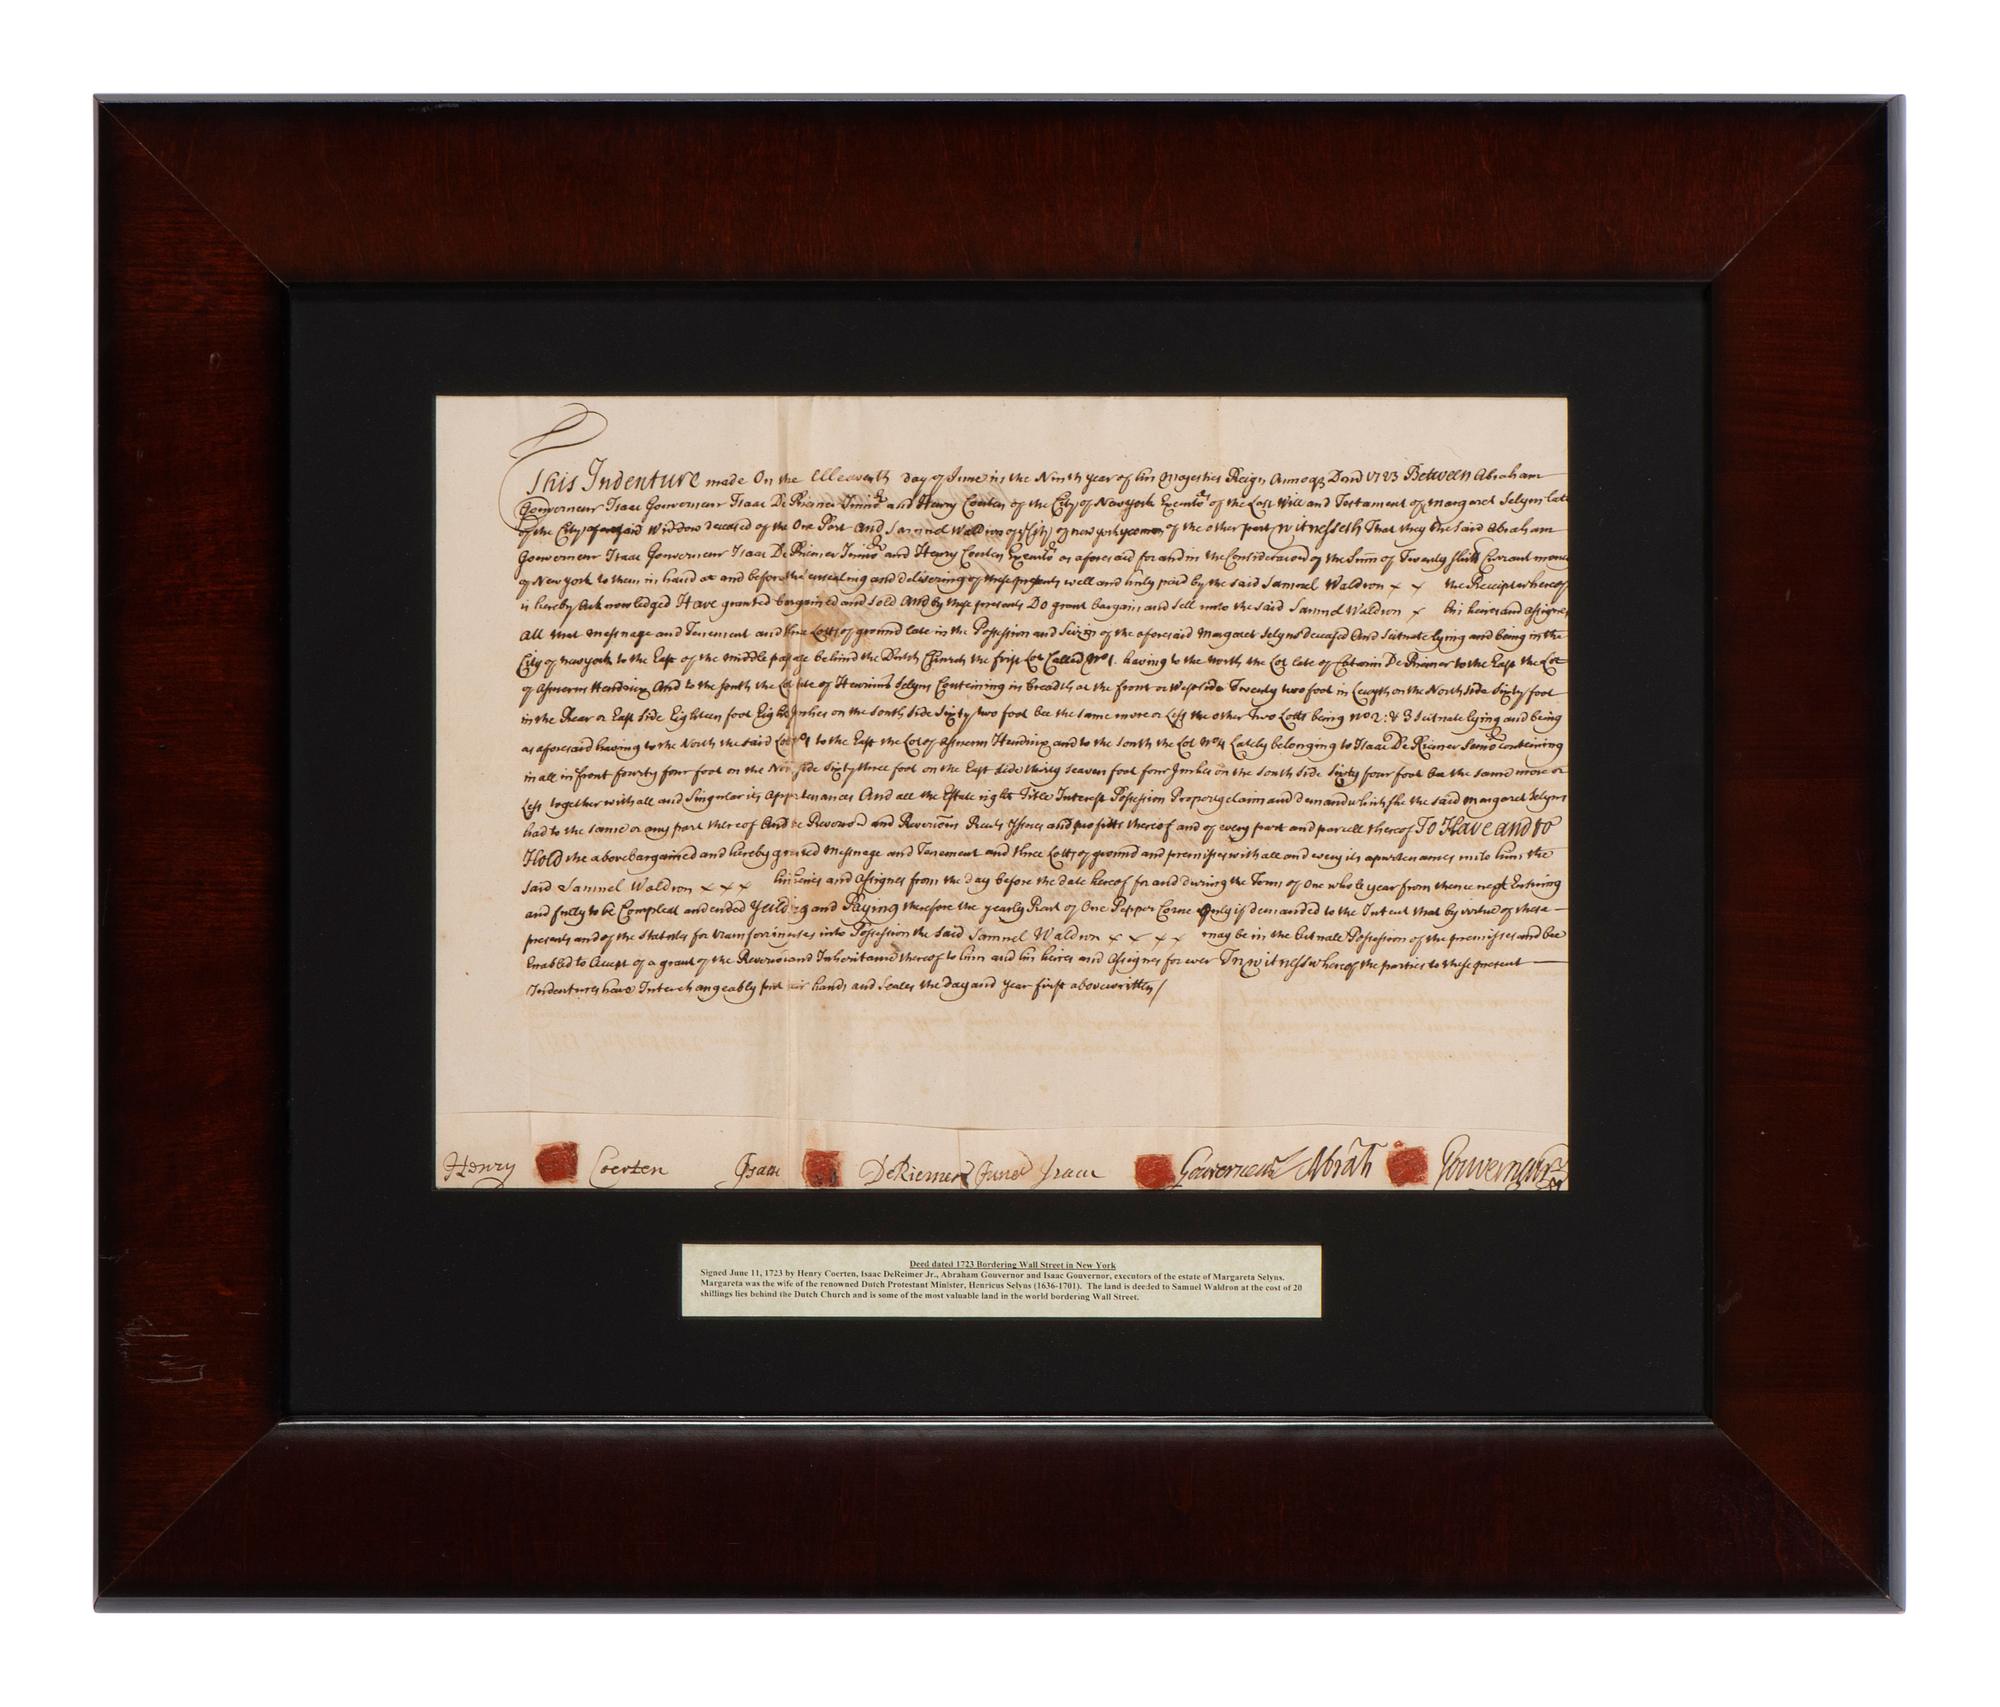 This Indenture made On the Elleaventh day of June in the Ninth year of his Majesties Reign Annoq Dom 1723 Between Abraham
Gouverneur Isaac Gouverneur Isaac De Riemer Junior and Henry Coerten of the City of New york Execut.rs of the Last Will and Testament of margaret Selyns late
of the City aforesaid Widdow deceased of the One Part And Samuel Waldron of City of new york yeoman of the other part Witnesseth That they the said Abraham
Gouverneur Isaac Gouverneur Isaac De Riemer Junior and Henry Coerten Execut.rs as aforesaid for and in the Consideracion of the Sum of Twenty shill Currant money
of New york to them in hand at and before the ensealing and delivering of these presents well and truly paid by the said Samuel Waldron x x the Receipt whereof
is hereby Acknowledged Have granted bargained and sold And by these presents Do grant bargain and sell unto the said Samuel Waldron x his heires and assignes
All that messuage and Tenement and three Lotts of ground late in the Possession and Seizin of the aforesaid margaret Selyns deceased And Scituate lying and being in the
City of new york to the East of the middle passage behind the Dutch Church the first Lot Called No 1. having to the north the Lot late of De Riemer to the East the Lot
of Hendrix And to the south the Lot late of Henricus Selyns Conteining in breadth at the front or West side Twenty two foot in Length on the North side Sixty foot
in the Rear or East side Eighteen foot Eight Inches on the south side Sixty two foot bee the same more or Less the other Two Lotts being No 2: & 3 scituate lying and being
as aforesaid having to the North the said Lot No 1 to the East the Lot of Hendrix and to the south the Lot No 4 Lately belonging to Isaac De Riemer Senior conteining
in all in front fourty four foot on the North side Sixty three foot on the East side thirty seaven foot four Inches on the south side Sixty four foot bee the same more or
Less together with all and Singular its Appurtenances And all the Estate right Title Interest Possession Property claim and demand which she the said margaret Selyns
had to the same or any part thereof And the Revercion and Revercions Rents Issues and profitts thereof and of every part and parcell thereof To Have and to
Hold the above bargained and hereby granted messuage and Tenement and three Lotts of ground and premisses with all and every its apurtenances unto him the
said Samuel Waldron x x x his heires and Assignes from the day before the date hereof for and during the Term of One whole year from thence next Ensuing
and fully to be Compleat and ended Yeilding and Paying therefore the yearly Rent of One Pepper Corne Only if demanded to the Intent that by virtue of these
presents and of the statutes for transferring uses into Possession the said Samuel Waldron x x x x may be in the actuale Possession of the premisses and bee
Enabled to Accept of a grant of the Revercion and Inheritance thereof to him and his heires and Assignes for ever In witness whereof the parties to these present
Indentures have Interchangeably sett their hands and seales the day and year first above written /
Henry Coerten Isaac DeRiemer Junor Isaac Gouverneur Abrah Gouverneur
Deed dated 1723 Bordering Wall Street in New York
Signed June 11, 1723 by Henry Coerten, Isaac DeReimer Jr., Abraham Gouvernor and Isaac Gouvernor, executors of the estate of Margareta Selyns.
Margareta was the wife of the renowned Dutch Protestant Minister, Henricus Selyns (1636-1701). The land is deeded to Samuel Waldron at the cost of 20
shillings lies behind the Dutch Church and is some of the most valuable land in the world bordering Wall Street.